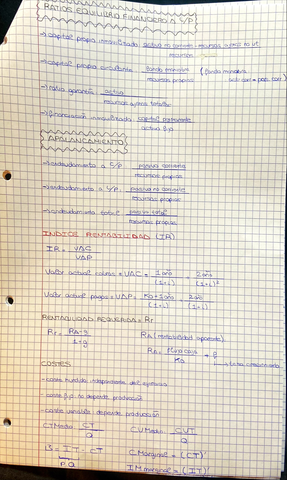 RATIOS EQUILIBRIO FINANCIERO A L/P
→ capital propio inmovilizado
recursos
→ capital propio circulante fondo maniobra (fondo maniobra
recursos propios
→ ratio garantía activo
recursos ajenos totales
→ financiación inmovilizado capital permanente
activo fijo
APALANCAMIENTO
→ endeudamiento a C/P pasivo corriente
recursos propios
→ endeudamiento a L/P pasivo no corriente
recursos propios
→ endeudamiento total pasivo total
recursos propios
INDICE RENTABILIDAD (IR)
IR = VAC
VAP
Valor actual cobros = VAC = 1 año + 2 año
(1+i) (1+i)²
Valor actual pagos = VAP = Ko + 1 año + 2 año
(1+i) (1+i)²
RENTABILIDAD REQUERIDA = Rr
Rr = RA - g RA (rentabilidad aparente)
1 + g RA = + g
Ko tasa crecimiento
COSTES
- coste hundido independiente del
- coste fijo no depende producción
- coste variable depende producción
CTMedio = CT CVMedio = CVT
Q Q
B = IT - CT CMarginal = (CT)'
P.Q IMarginal = (IT)'